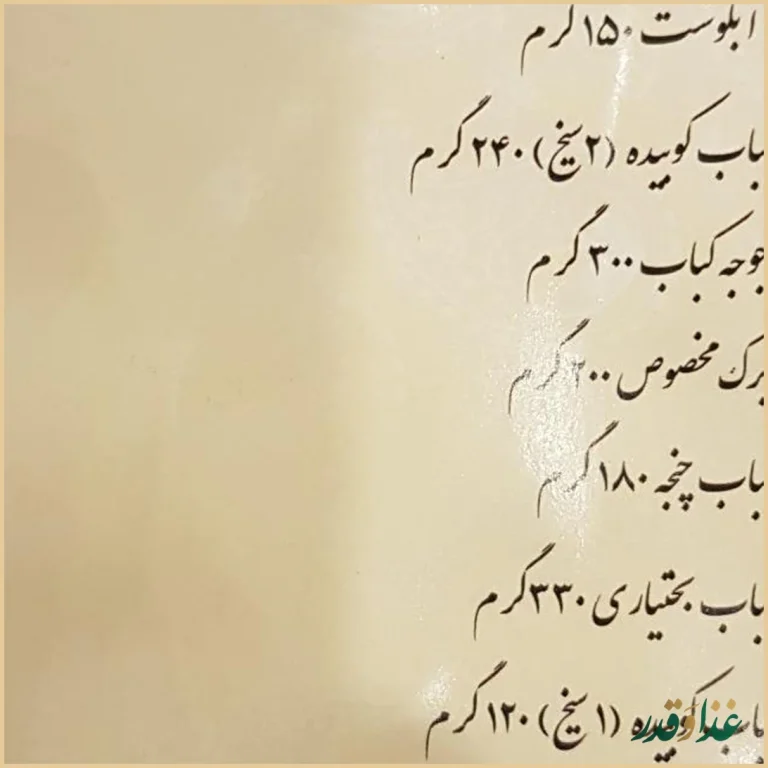 ابلوست ۱۵۰ گرم
باب کوبیده (۲ سیخ) ۲۴۰ گرم
جوجه کباب ۳۰۰ گرم
برگ مخصوص ۲۰۰ گرم
باب چنجه ۱۸۰ گرم
باب بختیاری ۳۳۰ گرم
باب کوبیده (۱ سیخ) ۱۲۰ گرم
غذا و قدر